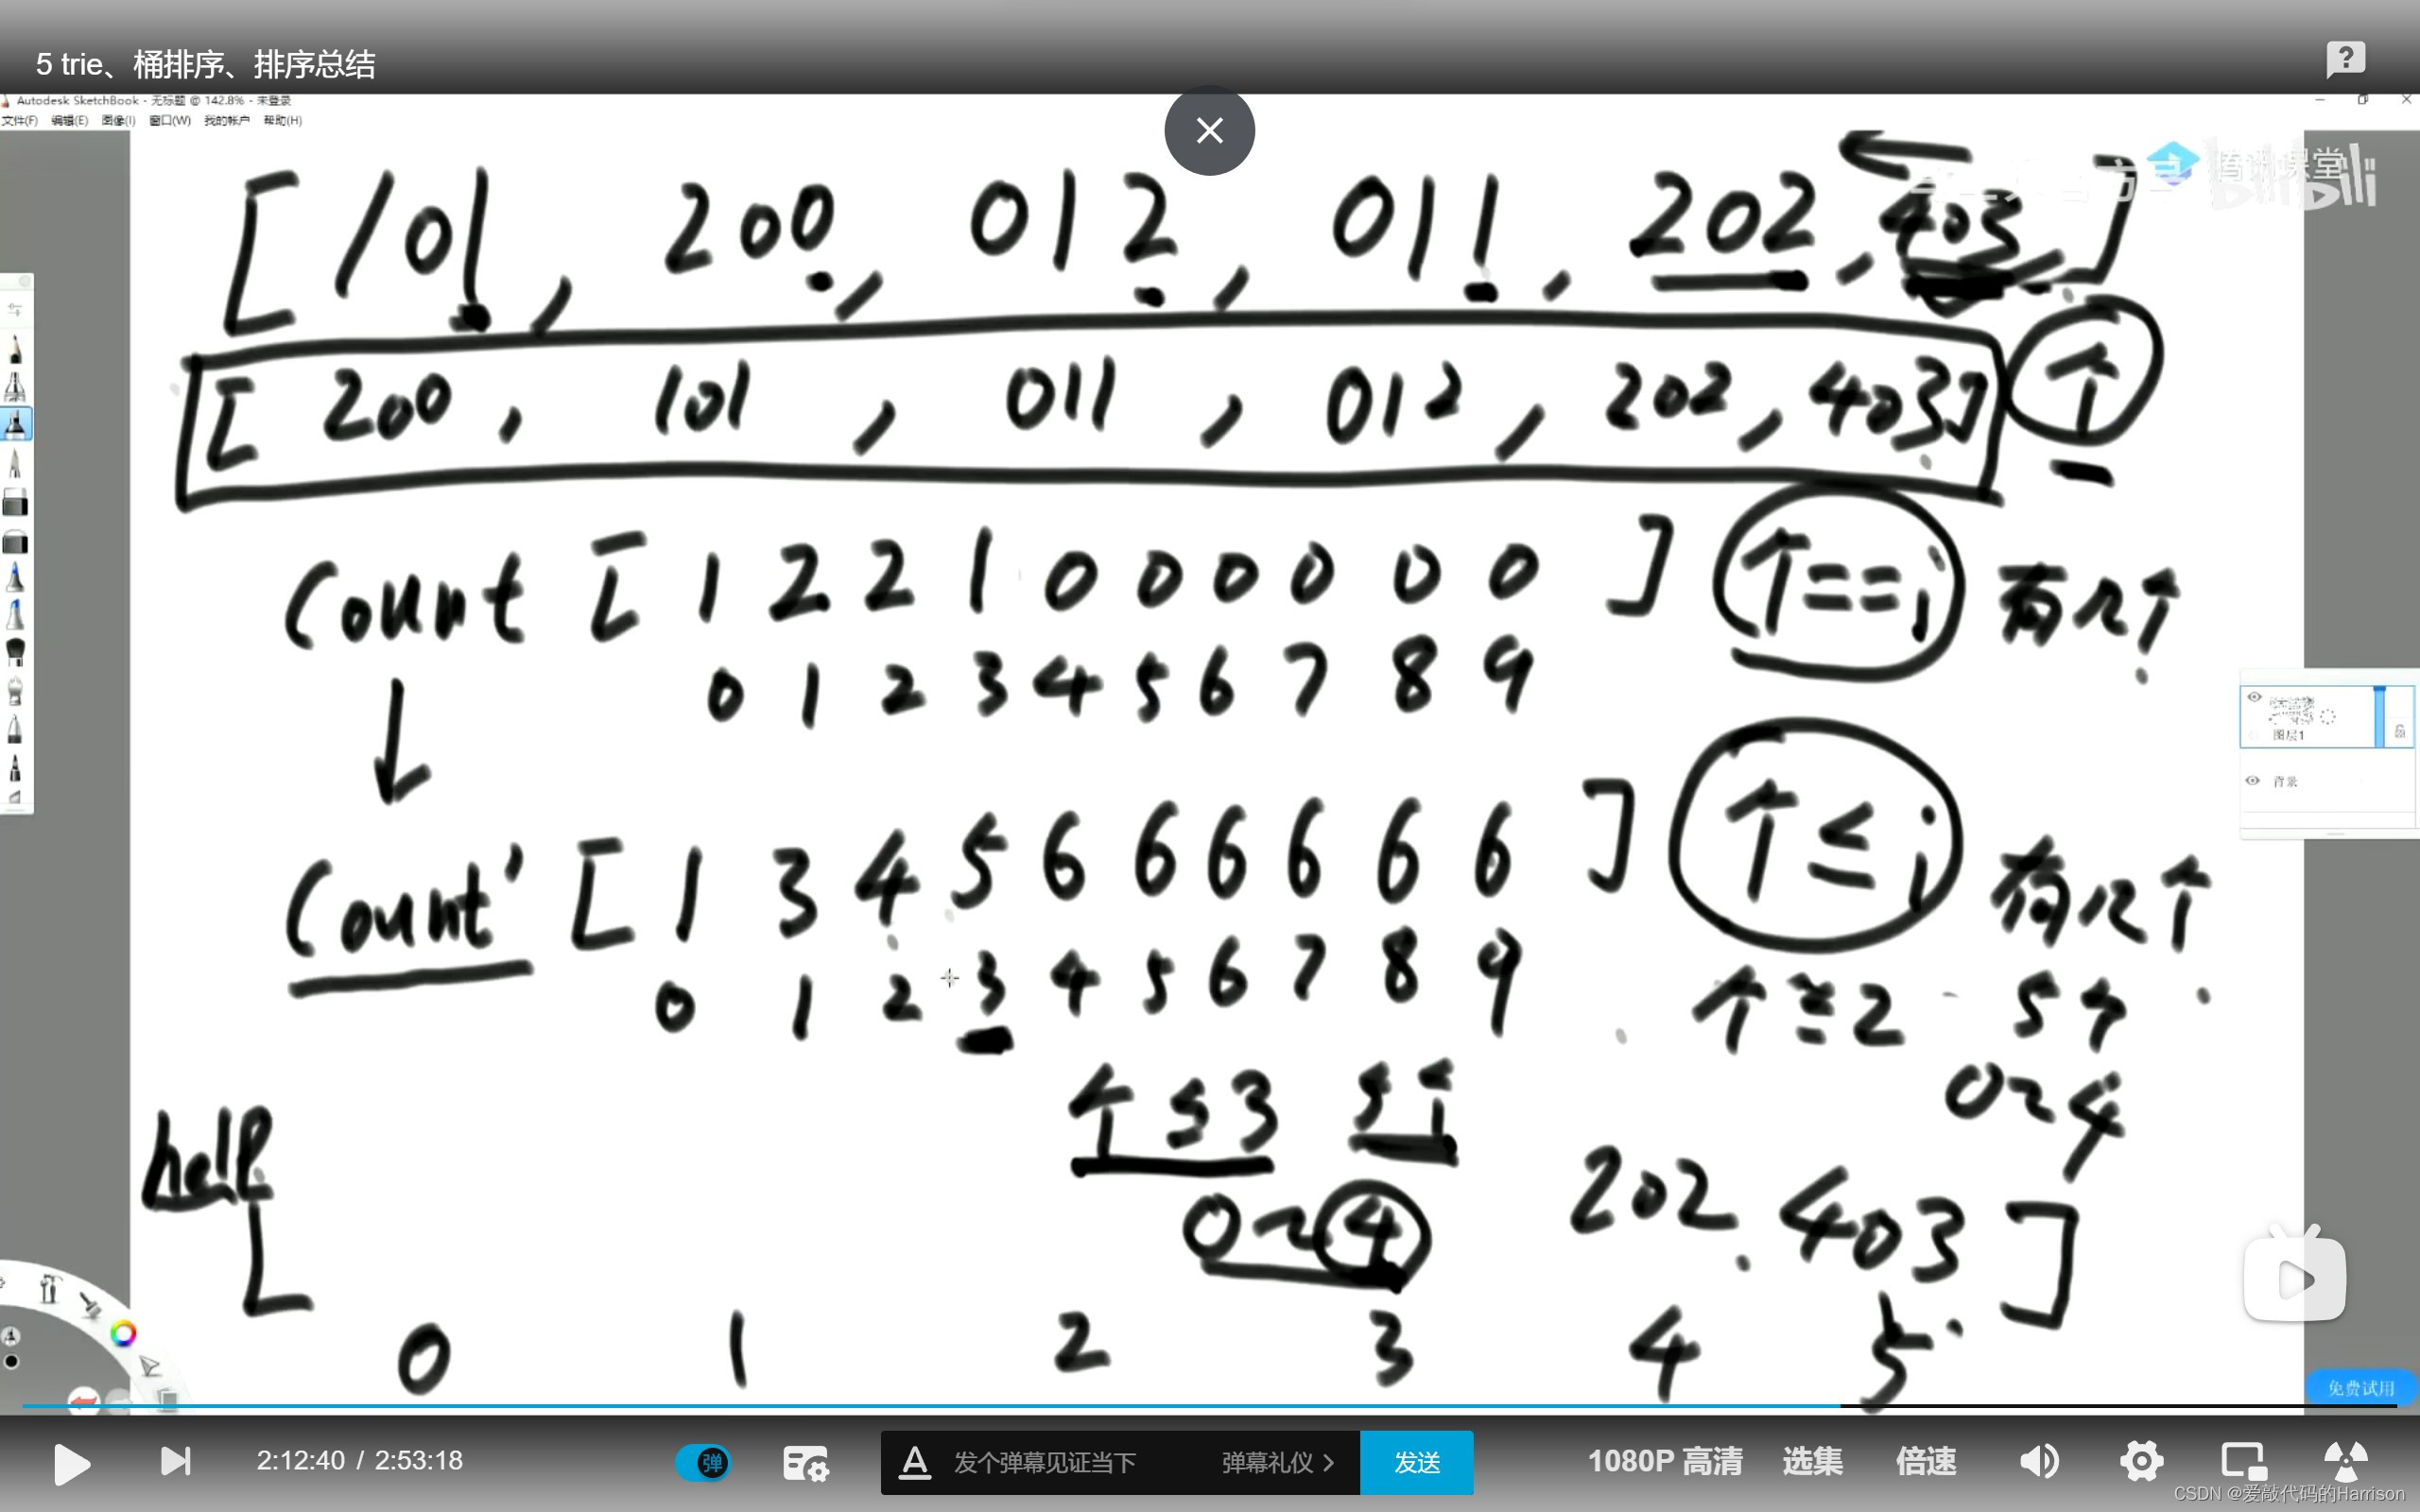 5 trie、桶排序、排序总结
Autodesk SketchBook - 无标题 @ 142.8% - 未登录
文件(F) 编辑(E) 图像(I) 窗口(W) 我的帐户 帮助(H)
腾讯课堂 bilibili
[101, 200, 012, 011, 202, 403, ]
[200, 101, 011, 012, 202, 403] 个
Count [1 2 2 1 0 0 0 0 0 0] 个==i 有几个
0 1 2 3 4 5 6 7 8 9
图层1
背景
Count' [1 3 4 5 6 6 6 6 6 6] 个≤i 有几个
0 1 2 3 4 5 6 7 8 9
个≤2 5个
个≤3 5个
0~4
help
0~4
[ 202. 403 ]
0 1 2 3 4 5
免费试用
2:12:40 / 2:53:18 弹 发个弹幕见证当下 弹幕礼仪 > 发送 1080P 高清 选集 倍速
CSDN @爱敲代码的Harrison